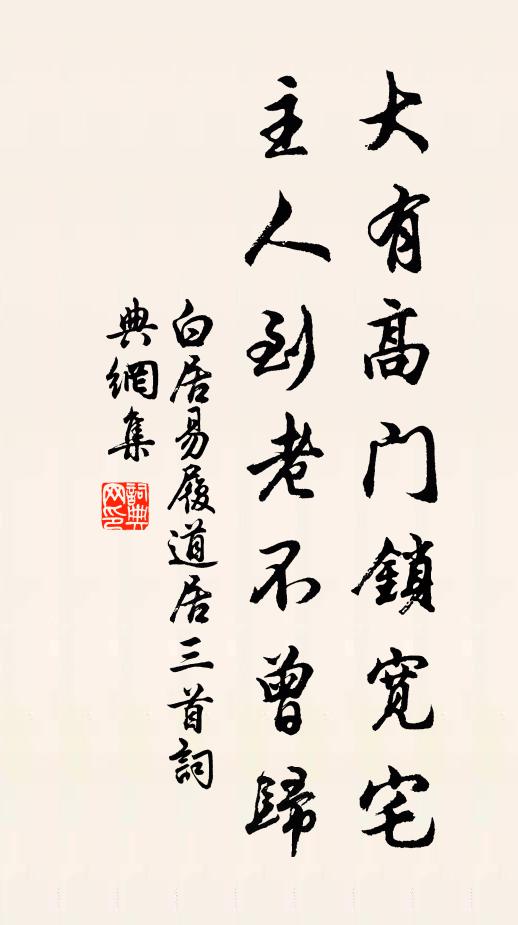 大有高门鎖寬宅
主人到老不曾歸
白居易履道居三首詞
典網集
詞典
网印